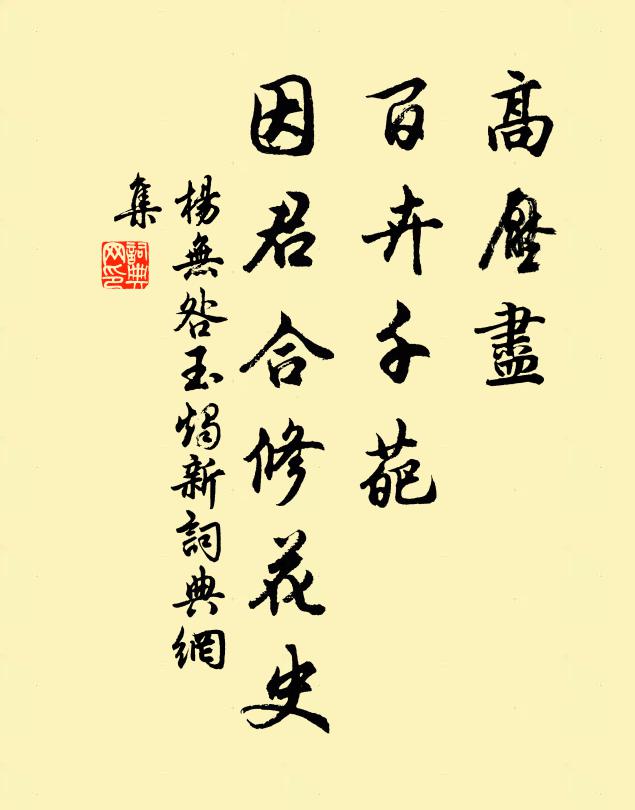 高壓盡
百卉千葩
因君合修花史
楊無咎玉燭新詞典網
集
詞典網印